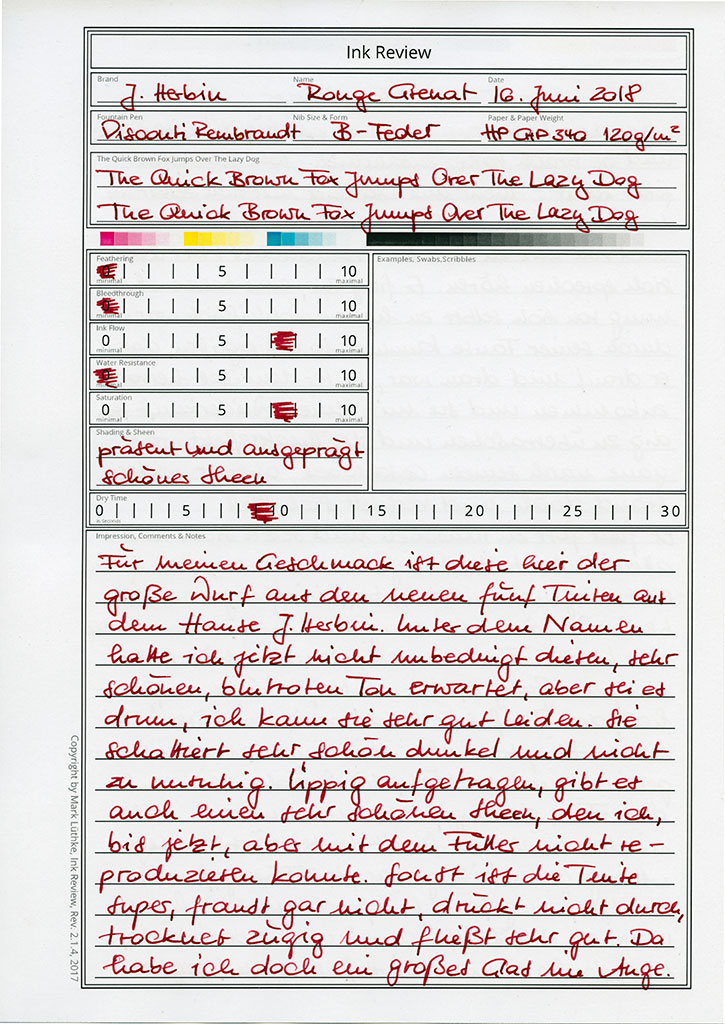 Ink Review
Brand Name Date
J. Herbin Rouge Grenat 16. Juni 2018
Fountain Pen Nib Size & Form Paper & Paper Weight
Visconti Rembrandt B-Feder HP CHP 340 120g/m²
The Quick Brown Fox Jumps Over The Lazy Dog
The Quick Brown Fox Jumps Over The Lazy Dog
The Quick Brown Fox Jumps Over The Lazy Dog
Feathering
0 5 10
minimal maximal
Bleedthrough
0 5 10
minimal maximal
Ink Flow
0 5 10
minimal maximal
Water Resistance
0 5 10
minimal maximal
Saturation
0 5 10
minimal maximal
Shading & Sheen
präsent und ausgeprägt
schönes Sheen
Examples, Swabs,Scribbles
Dry Time
0 5 10 15 20 25 30
in Seconds
Impression, Comments & Notes
Für meinen Geschmack ist diese hier der
große Wurf aus den neuen fünf Tinten aus
dem Hause J. Herbin. Unter dem Namen
hatte ich jetzt nicht unbedingt diesen, sehr
schönen, blutroten Ton erwartet, aber sei es
drum, ich kann sie sehr gut leiden. Sie
schattiert sehr schön dunkel und nicht
zu unruhig. Üppig aufgetragen, gibt es
auch einen sehr schönen Sheen, den ich,
bis jetzt, aber mit dem Füller nicht re-
produzieren konnte. Sonst ist die Tinte
super, franst gar nicht, drückt nicht durch,
trocknet zügig und fließt sehr gut. Da
habe ich doch ein großes Glas im Auge.
Copyright by Mark Lüthke, Ink Review, Rev. 2.1-4, 2017